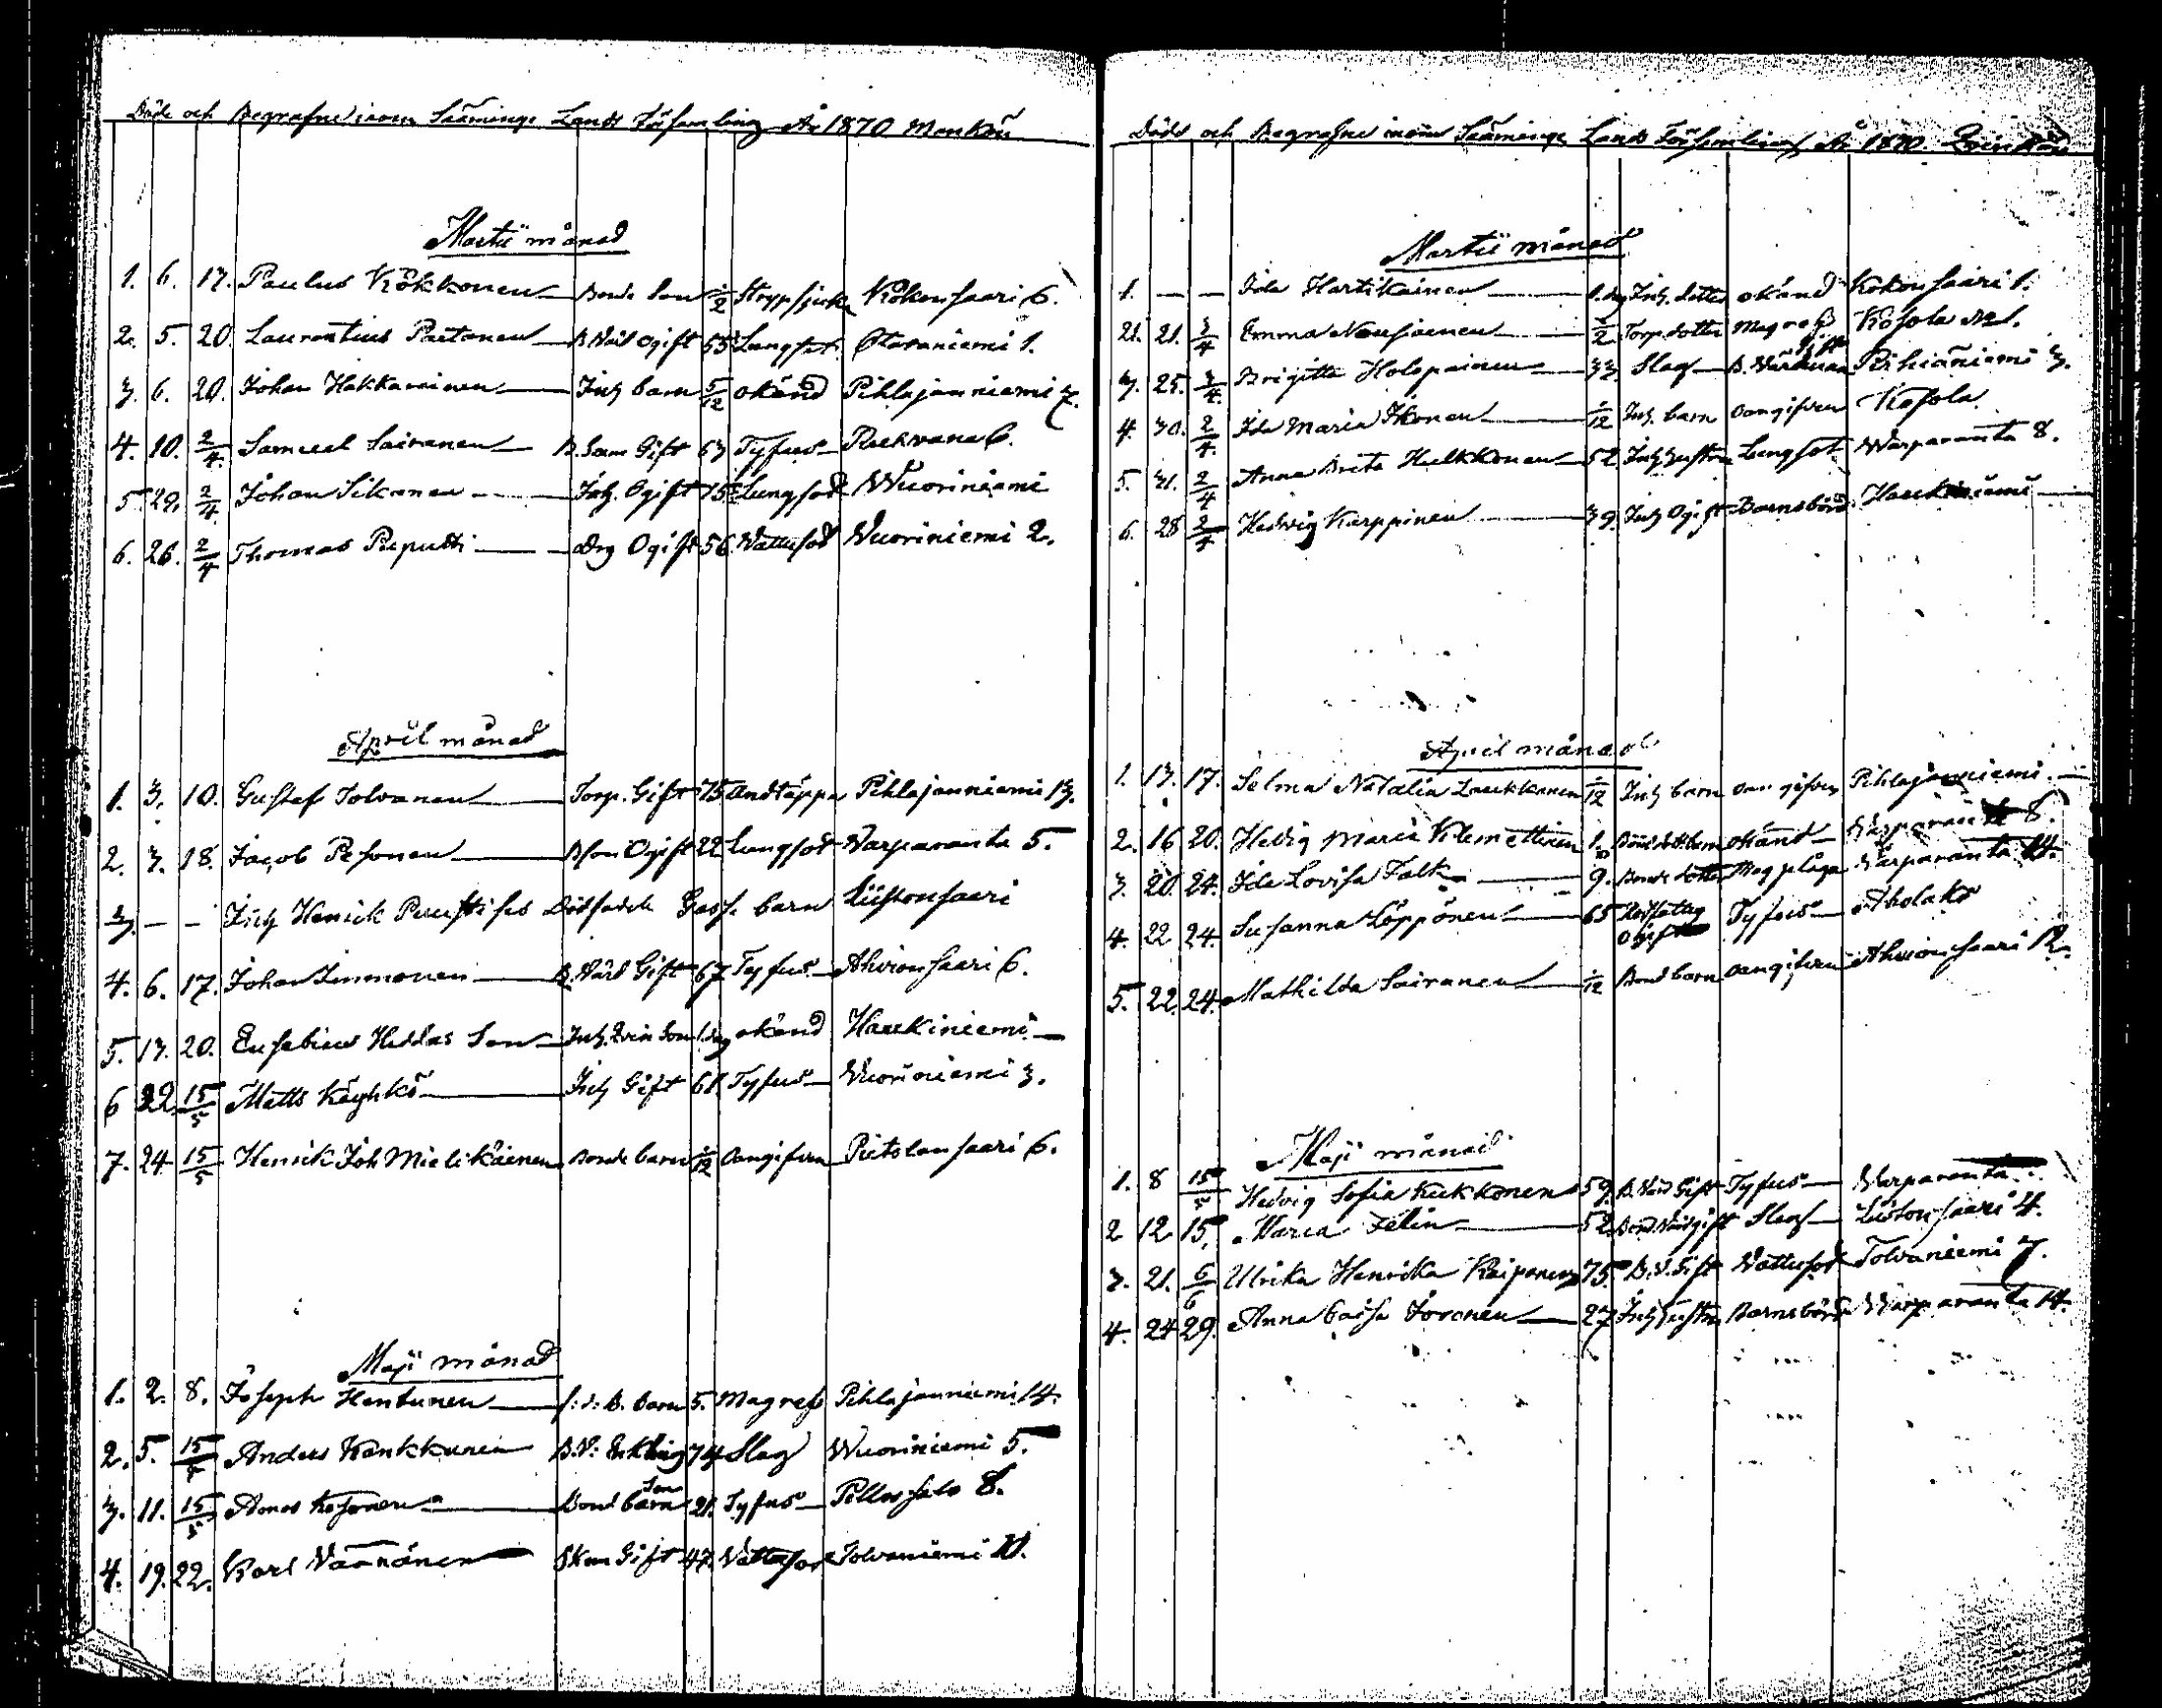 Döde och Begrafne inom Sääminge Lands Församling År 1870 Mankön
Martii månad
1. 6. 17. Paulus Kökkonen Bonde Son 1/2 Strypsjuka Kokonsaari 6.
2. 5. 20. Laurentius Partanen Ogift 55 Lungsot Otavaniemi 1.
3. 6. 20. Johan Hakkarainen Inh barn 5/12 okänd Pihlajaniemi 7.
4. 10. 2/4. Samuel Sairanen Gift 63 Tyfus 6.
5. 29. 2/4. Johan Sikanen Inh. Ogift 75 Lungsot Wuoriniemi
6. 26. 2/4 Thomas Puputti Drg Ogift 56. Wattusot Wuoriniemi 2.
April månad
1. 3. 10. Gustaf Tolvanen Torp. Gift 75 Andtäppa Pihlajanniemi 13.
2. 3. 18. Jacob Pesonen Bson Ogift 22 Lungsot Warparanta 5.
3. — — Inh Henrik Dödfödde Goss. barn Liistonsaari
4. 6. 17. Johan Immonen B. Värd Gift 67 Tyfus Ahvionsaari 6.
5. 13. 20. Eusebius Son Inh. Son 1. dag okänd Haukiniemi —
6 22 15/5 Matts Käyhkö Inh Gift 61. Tyfus Wuoriniemi 3.
7. 24 15/5 Henrik Joh Mielikäinen Bonde barn 1/12 oangifven Pietolansaari 6.
Maji månad
1. 2. 8. Joseph Hentunen B. barn 5. Magref Pihlajanniemi 14.
2. 5. 15/5 Anders Kankkunen B.V. Enkling 74 Slag Wuoriniemi 5.
Son
3. 11. 15/5 Amos Kosonen Bond barn 21. Tyfus Pellossalo 8.
4. 19. 22. Karl Gift 47. Wattusot Tolvaniemi 11.
Döde och Begrafne inom Sääminge Lands Församling År 1870. Qvinkön
Martii månad
1. — — Ida Hartikainen 1. dag Inh. dotter okänd Kokonsaari 1.
21. 21. 3/4 Emma Nousiainen 1/2 Torp. dotter Magref Kosola No 1.
3. 25. 3/4. Brigitta Holopainen 33 Slag 3.
4. 30. 2/4. Ida Maria Ikonen 1/12 Inh. barn oangifven Kosola
5. 31. 2/4 Anna Brita Hulkkonen 52 Inh hustru Lungsot Warparanta 8.
6. 28 2/4 Hedvig Karppinen 39. Inh Ogift Barnsbörd Haukiniemi —
April månad
1. 13. 17. Selma Natalia Laukkanen 1/12 Inh barn oangifven Pihlajanniemi —
2. 16 20. Hedvig Maria Klemettinen 1. okänd Warparanta 8.
3. 20. 24. Ida Lovisa Falk 9. Bonde dotter Magplåga Warparanta 14.
4. 22 24. Susanna Löppönen 65 Ogift Tyfus Aholaks
5. 22. 24. Mathilda Sairanen 1/12 Bond barn oangifven Ahvionsaari 12.
Maji månad
1. 8 15/5 Hedvig Sofia Kukkonen 59. B. Värd Gift Tyfus Warparanta
2 12 15. Maria Felin 52 gift Slag Liistonsaari 4.
3. 21. 6/6 Ulrika Henrika Kaiponen 75. B.V. Gift Wattusot Tolvaniemi 7.
4. 24 29. Anna Caisa Torvonen 27 Inh hustru Barnsbörd Warparanta 14.